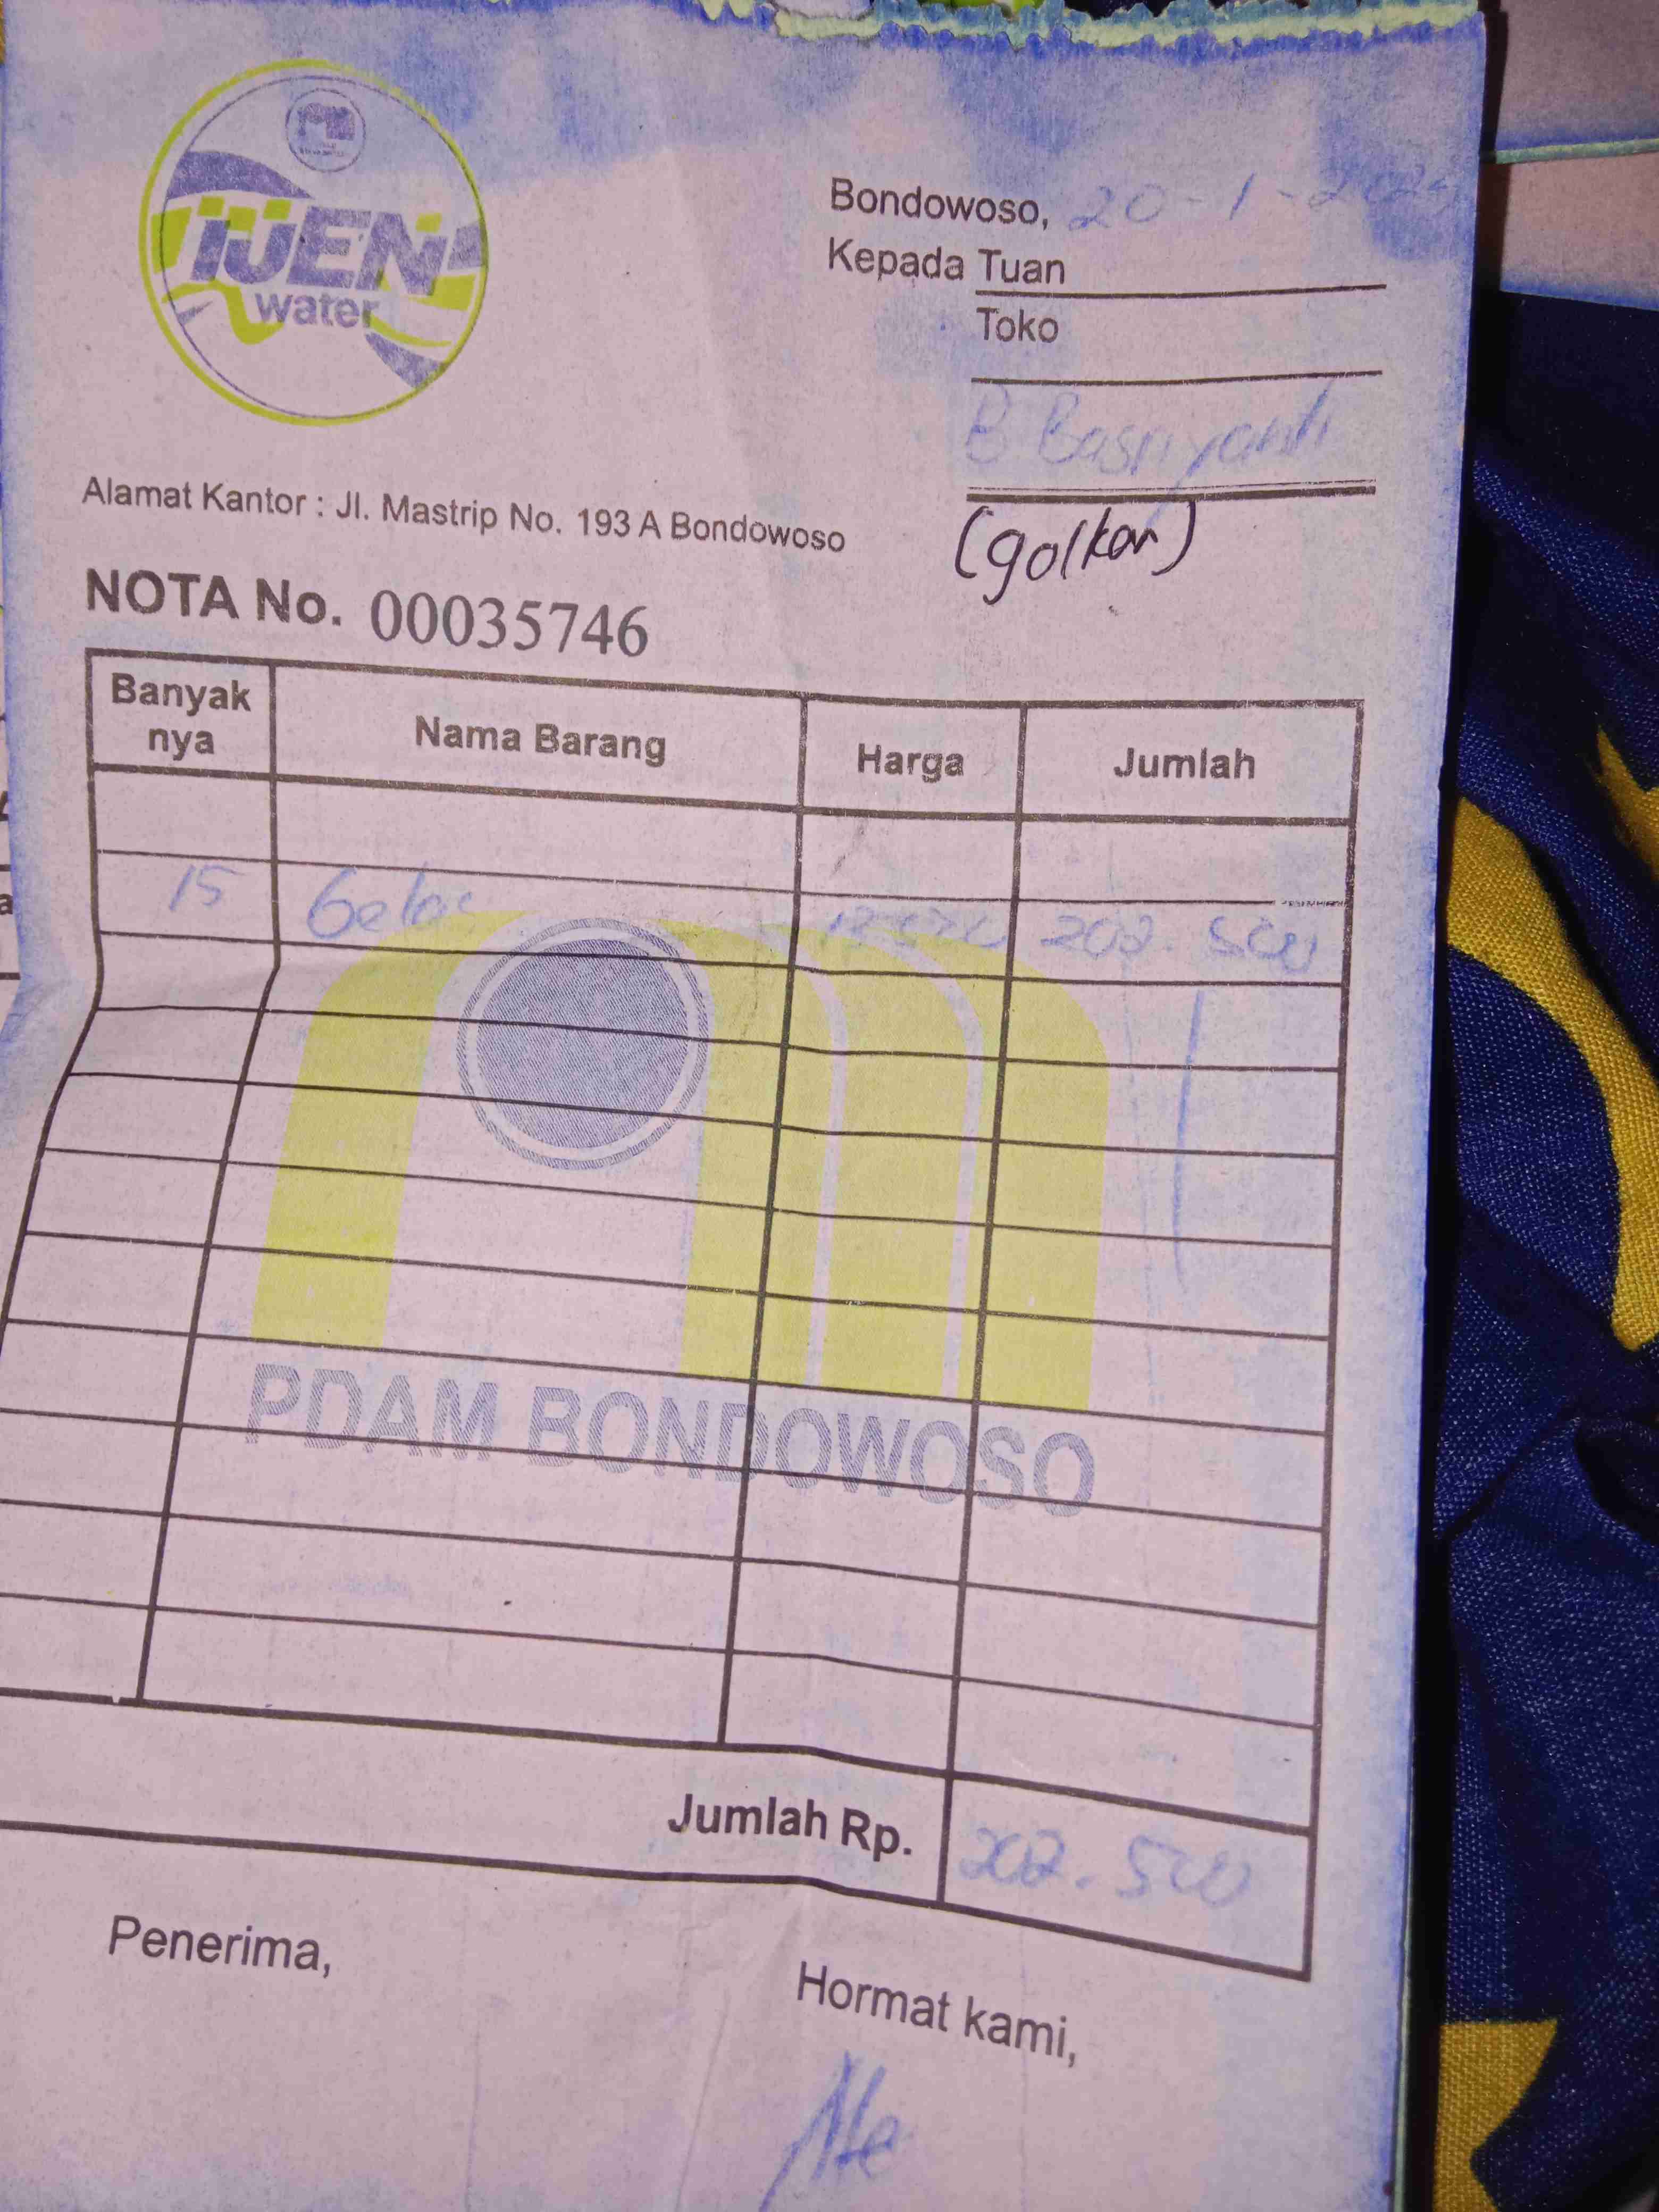 IJEN
water
Bondowoso, 20-1-
Kepada Tuan
Toko
B. Basriyanti
(golkar)
Alamat Kantor : Jl. Mastrip No. 193 A Bondowoso
NOTA No. 00035746
Banyak nya Nama Barang Harga Jumlah
15 Gelas 202.500
PDAM BONDOWOSO
Jumlah Rp. 202.500
Penerima,
Hormat kami,